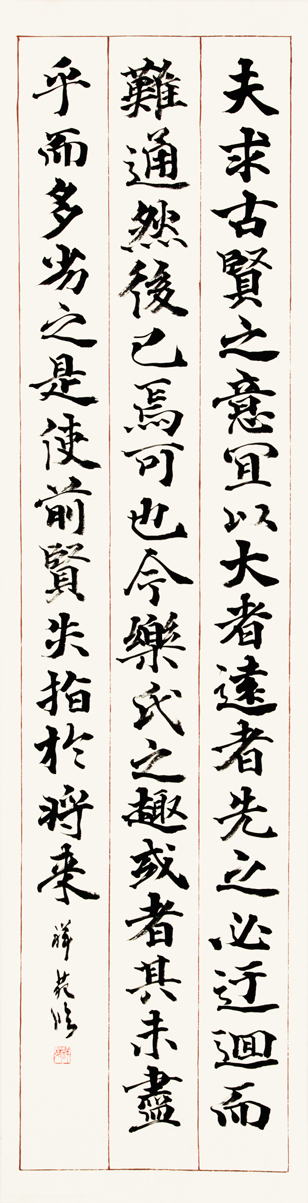 夫求古賢之意宜以大者遠者先之必迂迴而
難通然後已焉可也今樂氏之趣或者其未盡
乎而多劣之是使前賢失指於將来
祥苑臨